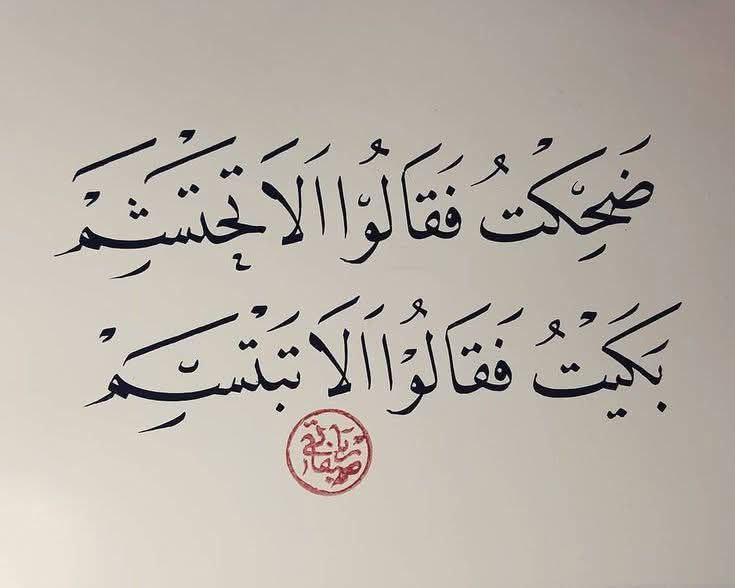 ضَحِكْتُ فَقَالُوْا اَلَا تَحْتَشِمْ
بَكَيْتُ فَقَالُوْا اَلَا تَبْتَسِمْ